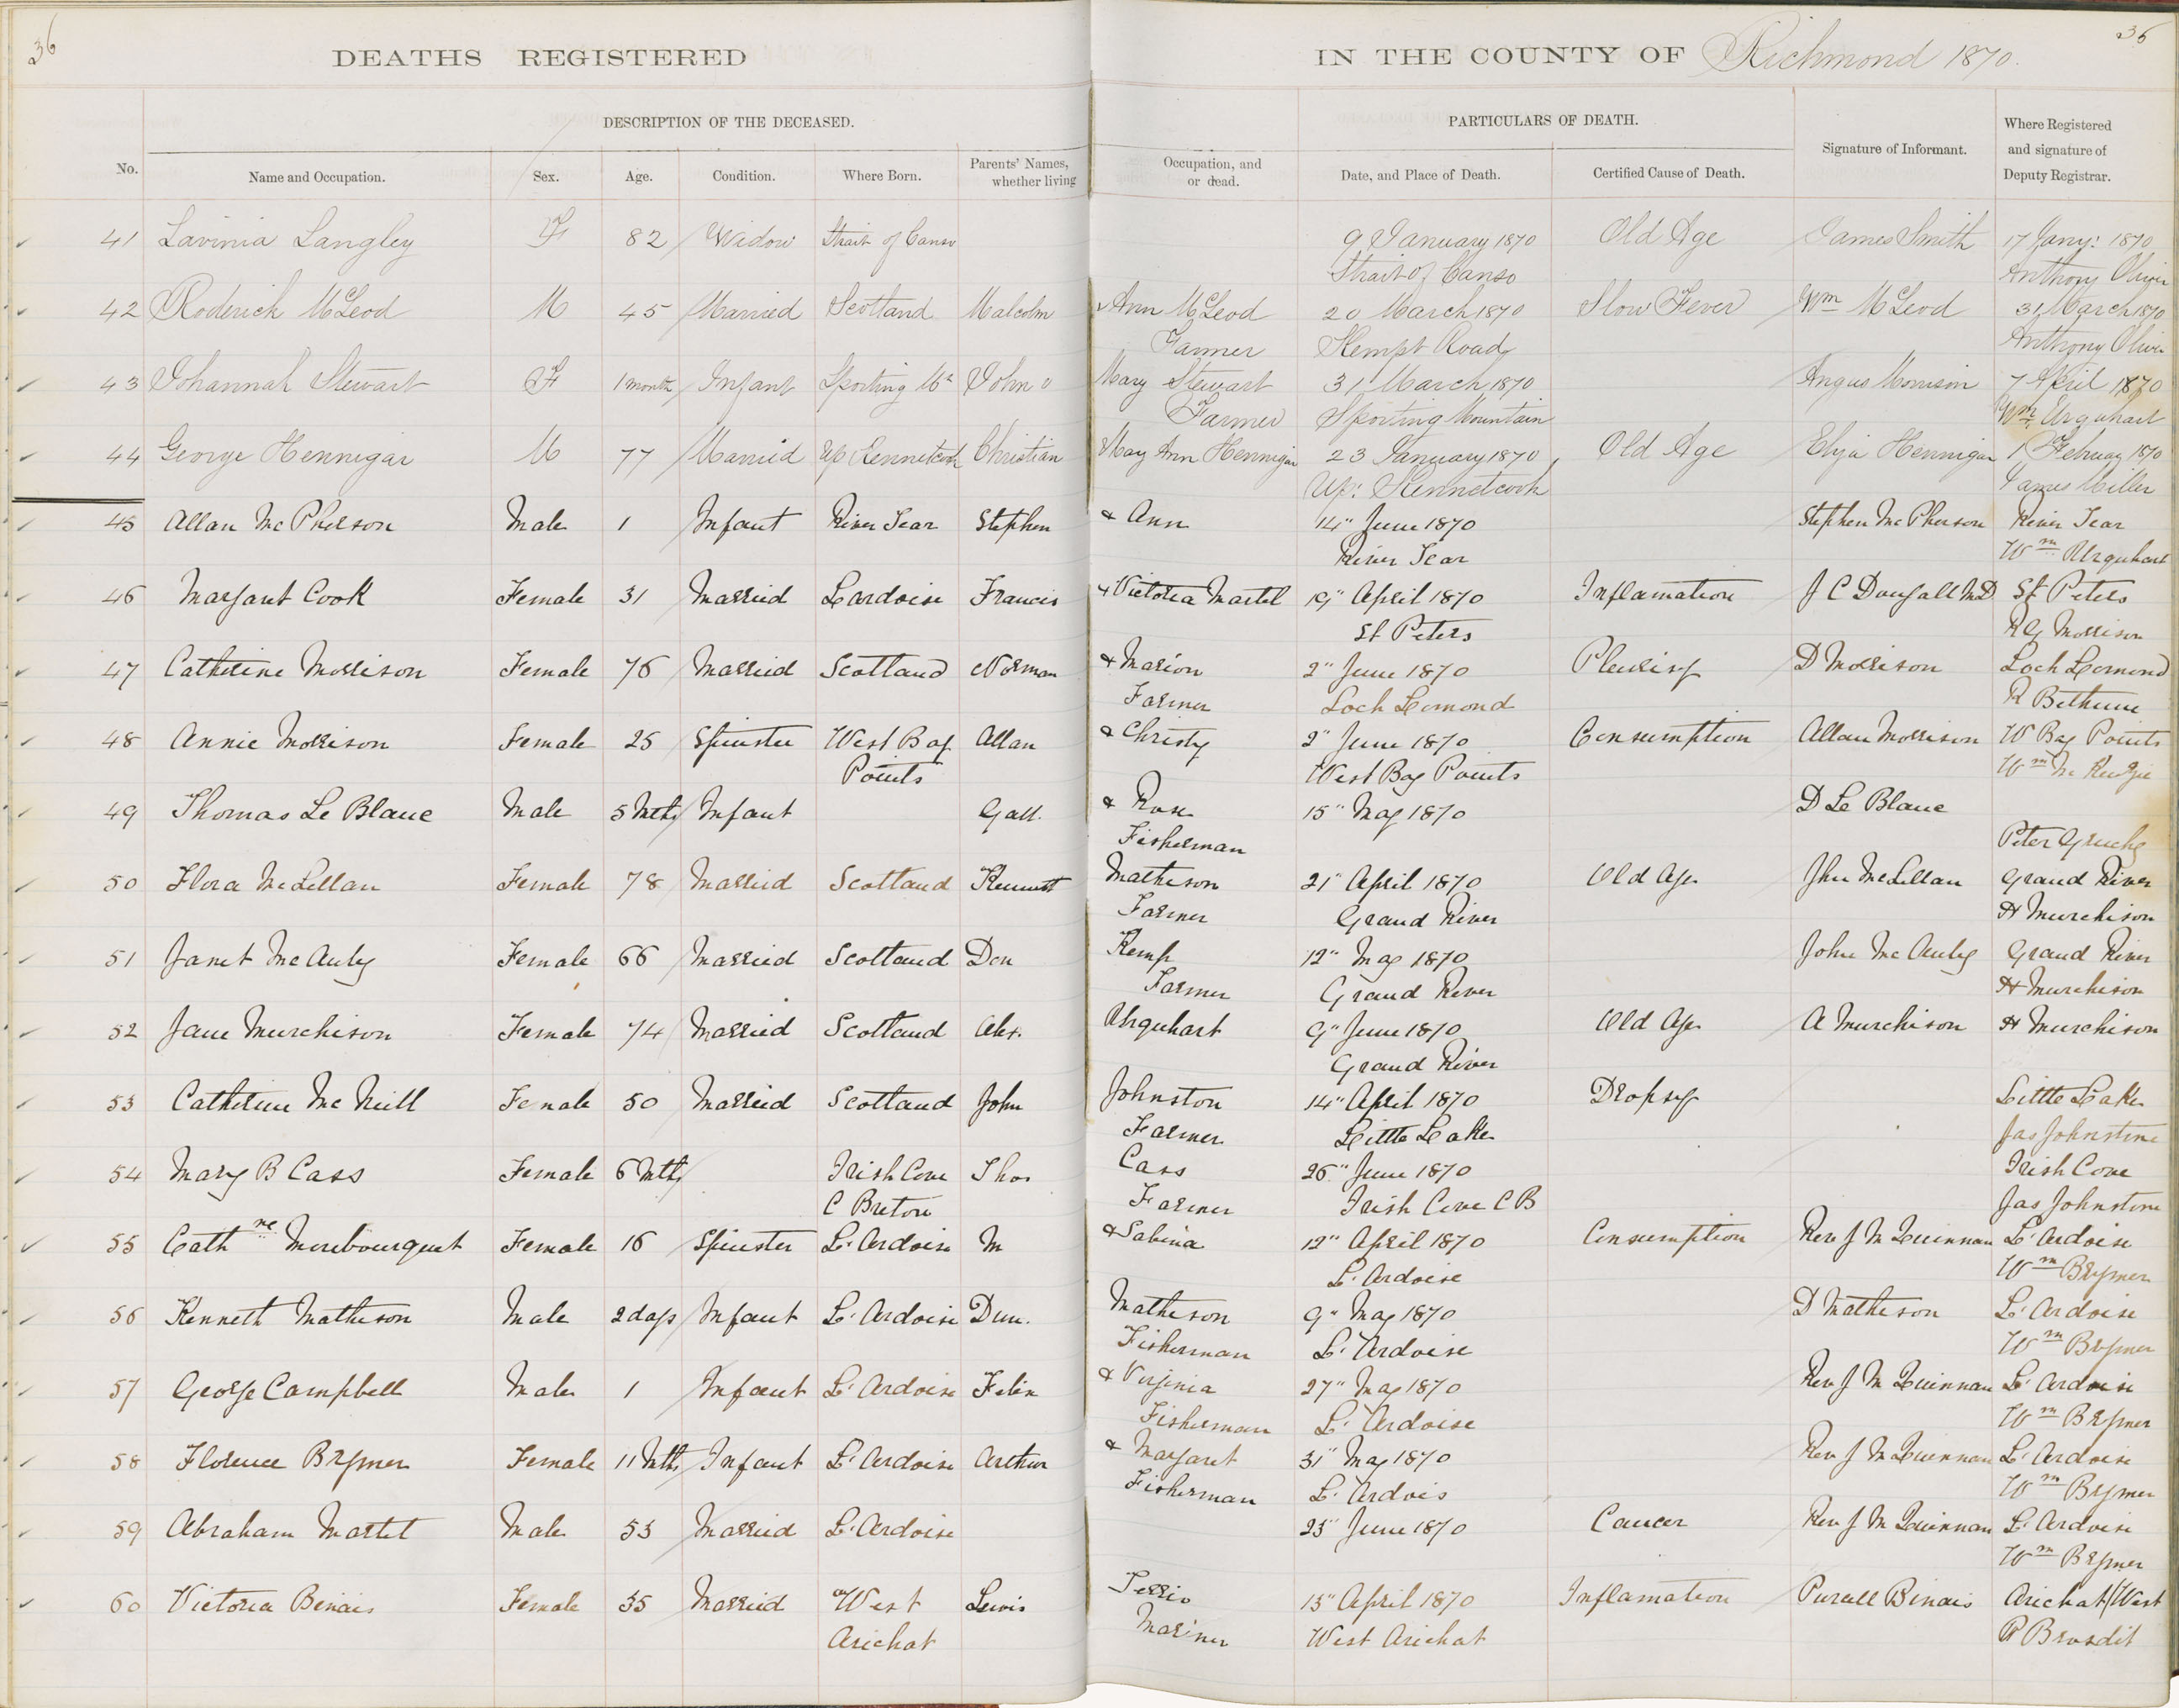 36
DEATHS REGISTERED IN THE COUNTY OF Richmond 1870.
36
DESCRIPTION OF THE DECEASED. PARTICULARS OF DEATH.
No. Name and Occupation. Sex. Age. Condition. Where Born. Parents' Names, whether living Occupation, and or dead. Date, and Place of Death. Certified Cause of Death. Signature of Informant. Where Registered and signature of Deputy Registrar.
41 Lavinia Langley F 82 Widow Strait of Canso 9 January 1870 Old Age James Smith 17 Jany: 1870
Strait of Canso Anthony Oliver
42 Roderick McLeod M 45 Married Scotland Malcolm & Ann McLeod 20 March 1870 Slow Fever Wm McLeod 31 March 1870
Farmer Kempt Road Anthony Oliver
43 Johannah Stewart F 1 month Infant Sporting Mt John & Mary Stewart 31 March 1870 Angus Morrison 7 April 1870
Farmer Sporting Mountain Wm Urquhart
44 George Hennigar M 77 Married Up Kennetcook Christian Mary Ann Hennigar 23 January 1870 Old Age Elija Hennigar 1 February 1870
Up: Kennetcook James Miller
45 Allan McPherson Male 1 Infant River Tear Stephen & Ann 14" June 1870 Stephen McPherson River Tear
River Tear Wm Urquhart
46 Margaret Cook Female 31 Married Lardoise Francis & Victoria Martel 19" April 1870 Inflamation J C Dougall MD St Peters
St Peters R G Morrison
47 Catherine Morrison Female 76 Married Scotland Norman & Marion 2" June 1870 Pleurisy D Morrison Loch Lomond
Farmer Loch Lomond R Bethune
48 Annie Morrison Female 25 Spinster West Bay & Allan & Christy 2" June 1870 Consumption Allan Morrison W Bay Points
Points West Bay Points Wm McKenzie
49 Thomas Le Blanc Male 5 Mths Infant Gall. & Rose 15" May 1870 D Le Blanc
Fisherman Peter Gruchy
50 Flora McLellan Female 78 Married Scotland Kennet Matheson 21" April 1870 Old Age Jhn McLellan Grand River
Farmer Grand River H Murchison
51 Janet McAuly Female 66 Married Scotland Don Kemp 12" May 1870 John McAuly Grand River
Farmer Grand River H Murchison
52 Jane Murchison Female 74 Married Scotland Alex. Urquhart 9" June 1870 Old Age A Murchison H Murchison
Grand River
53 Catherine McNeill Female 50 Married Scotland John Johnston 14" April 1870 Dropsy Little Lake
Farmer Little Lake Jas Johnstone
54 Mary B Cass Female 6 Mths Irish Cove Thos Cass 26" June 1870 Irish Cove
C Breton Farmer Irish Cove C B Jas Johnstone
55 Cathne Mombourquet Female 16 Spinster L'Ardoise M & Sabina 12" April 1870 Consumption Rev J M Quinnan L'Ardoise
L'Ardoise Wm Brymer
56 Kenneth Matheson Male 2 days Infant L'Ardoise Dun. Matheson 9" May 1870 D Matheson L'Ardoise
Fisherman L'Ardoise Wm Brymer
57 George Campbell Male 1 Infant L'Ardoise Felix & Virginia 27" May 1870 Rev J M Quinnan L'Ardoise
Fisherman L'Ardoise Wm Brymer
58 Florence Brymer Female 11 Mths Infant L'Ardoise Arthur & Margaret 31" May 1870 Rev J M Quinnan L'Ardoise
Fisherman L'Ardois Wm Brymer
59 Abraham Martel Male 53 Married L'Ardoise 23" June 1870 Cancer Rev J M Quinnan L'Ardoise
Wm Brymer
60 Victoria Benais Female 35 Married West Lewis Terrio 13" April 1870 Inflamation Purcell Binais Arichat West
Arichat Mariner West Arichat P Brosdit